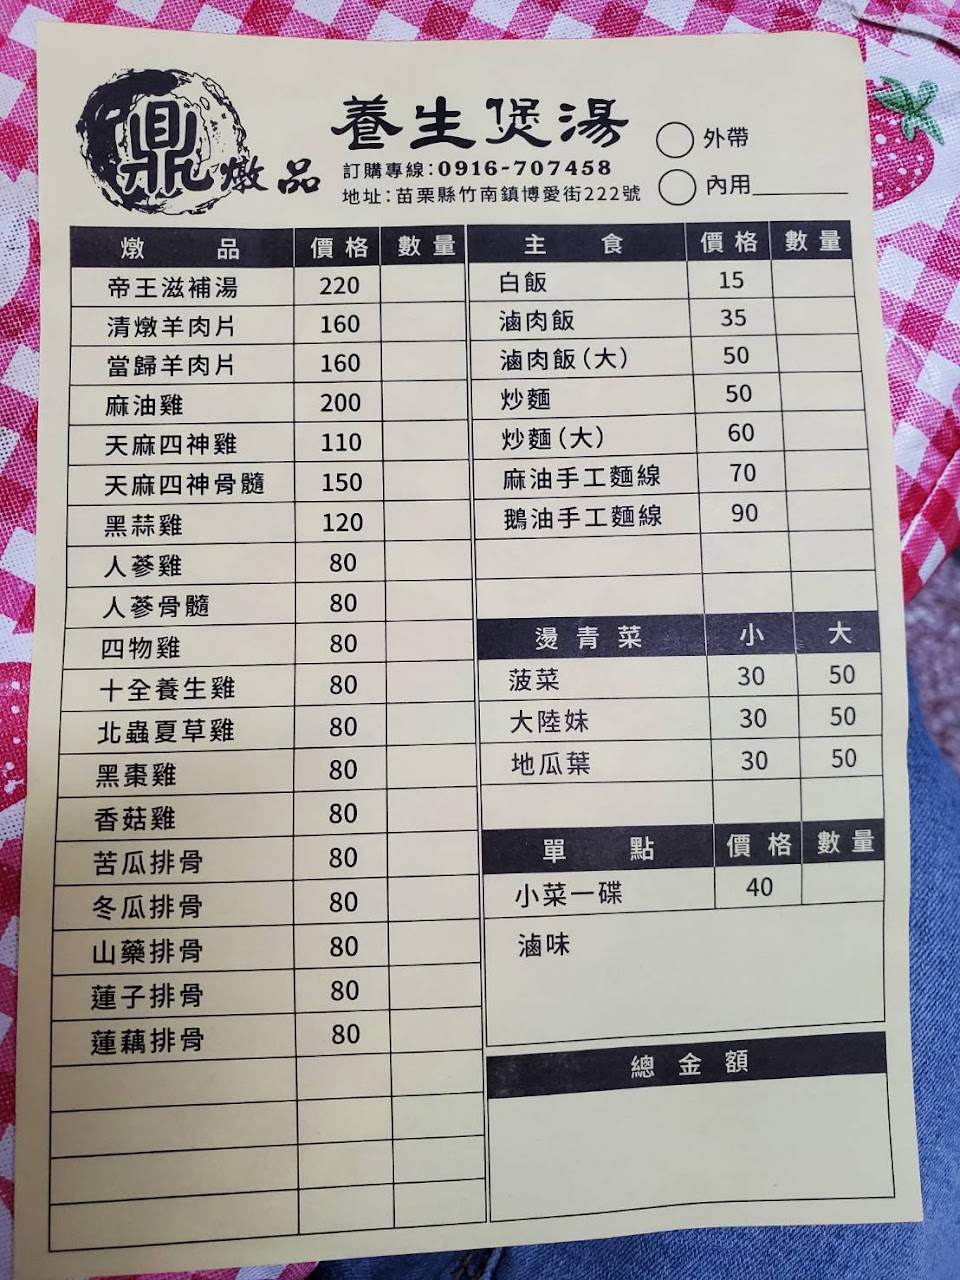 鼎燉品
養生煲湯
訂購專線：0916-707458
地址：苗栗縣竹南鎮博愛街222號
外帶
內用
燉品 價格 數量
帝王滋補湯 220
清燉羊肉片 160
當歸羊肉片 160
麻油雞 200
天麻四神雞 110
天麻四神骨髓 150
黑蒜雞 120
人蔘雞 80
人蔘骨髓 80
四物雞 80
十全養生雞 80
北蟲夏草雞 80
黑棗雞 80
香菇雞 80
苦瓜排骨 80
冬瓜排骨 80
山藥排骨 80
蓮子排骨 80
蓮藕排骨 80
主食 價格 數量
白飯 15
滷肉飯 35
滷肉飯（大） 50
炒麵 50
炒麵（大） 60
麻油手工麵線 70
鵝油手工麵線 90
燙青菜 小 大
菠菜 30 50
大陸妹 30 50
地瓜葉 30 50
單點 價格 數量
小菜一碟 40
滷味
總金額